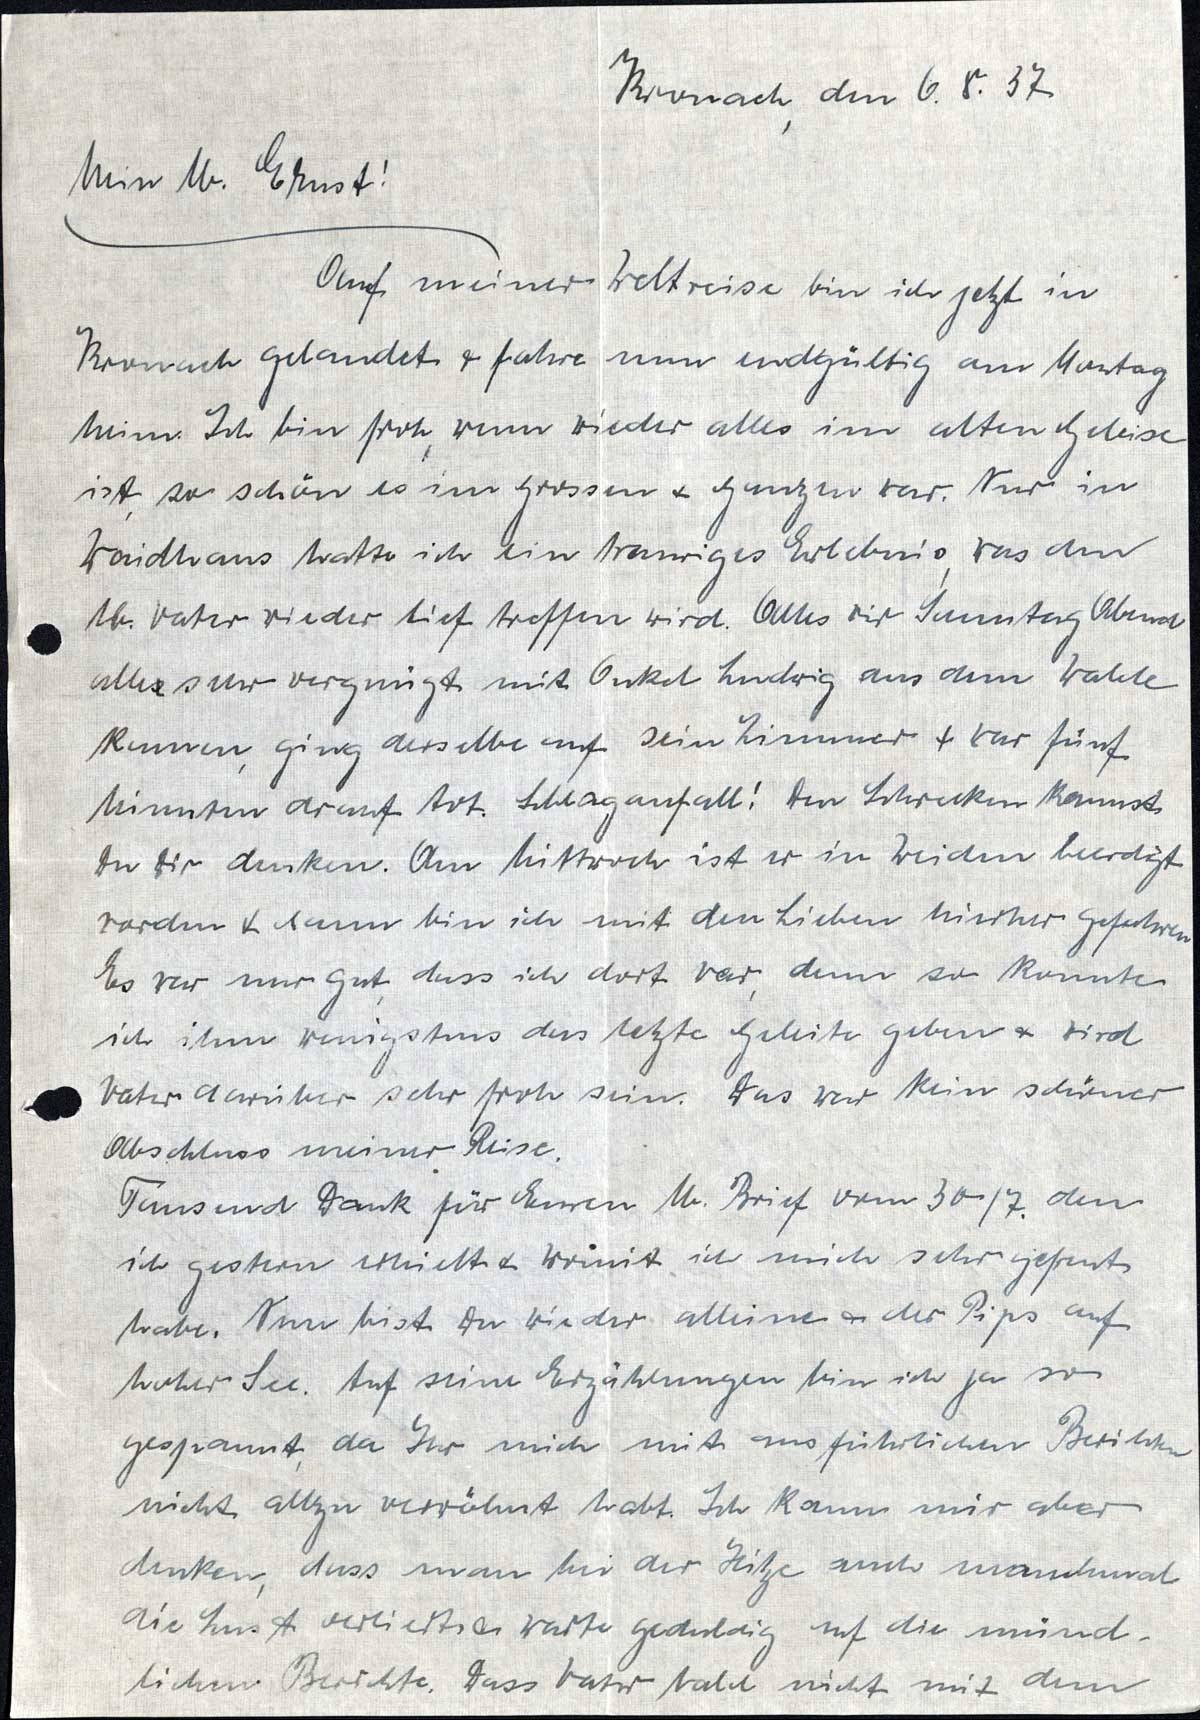 Kronach, den 6. 8. 37
Mein lb. Ernst!
Auf meiner Weltreise bin ich jetzt in
Kronach gelandet & fahre nun endgültig am Montag
heim. Ich bin froh, wenn wieder alles im alten Geleise
ist, so schön es im grossen & ganzen war. Nur in
Waidhaus hatte ich ein trauriges Erlebnis, was den
lb. Vater wieder tief treffen wird. Alles wir Sonntag Abend
alle sehr vergnügt mit Onkel Ludwig aus dem Walde
kamen, ging derselbe auf sein Zimmer & war fünf
Minuten drauf tot. Schlaganfall! Den Schrecken kannst
Du Dir denken. Am Mittwoch ist er in Weiden beerdigt
worden & dann bin ich mit den Lieben hierher gefahren
Es war nur gut, dass ich dort war, denn so konnte
ich ihm wenigstens das letzte Geleite geben & wird
Vater darüber sehr froh sein. Das war kein schöner
Abschluss meiner Reise.
Tausend Dank für Euren lb. Brief vom 30/7. den
ich gestern erhielt & womit ich mich sehr gefreut
habe. Nun bist Du wieder alleine & der Pips auf
hoher See. Auf seine Erzählungen bin ich ja so
gespannt, da Ihr mich mit ausführlichen Berichten
nicht allzu verwöhnt habt. Ich kann mir aber
denken, dass man bei der Hitze auch manchmal
die Lust verliert & warte geduldig auf die münd-
lichen Berichte. Dass Vater bald nicht mit dem